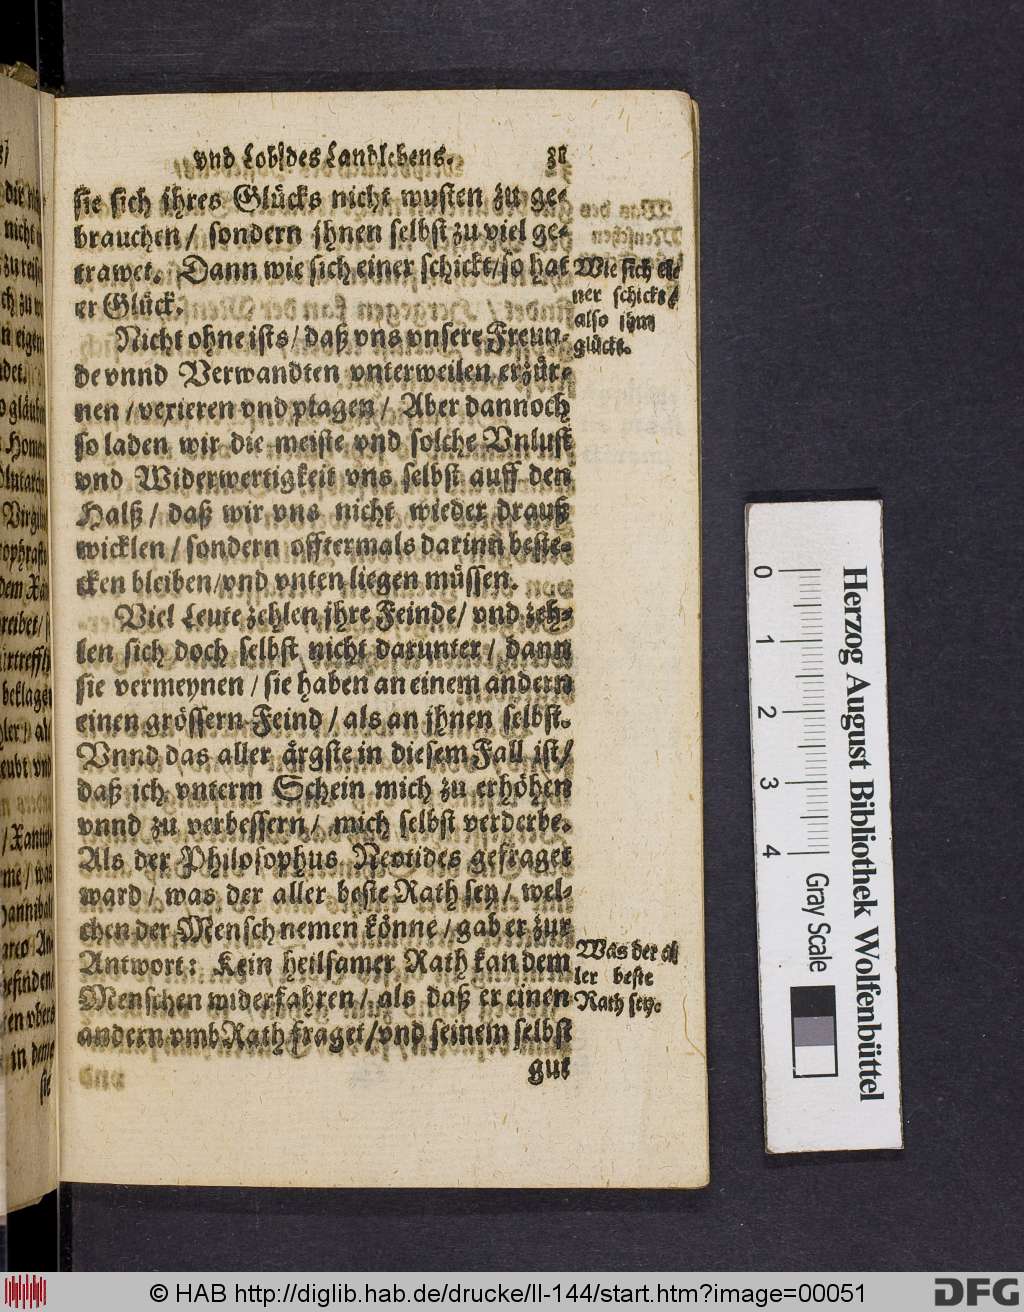 vnd Lob/des Landlebens. 21
sie sich jhres Glücks nicht wusten zu ge-
brauchen / sondern jhnen selbst zu viel ge-
trawet. Dann wie sich einer schickt/so hat
er Glück.
Wie sich ei-
ner schickt /
also jhm
glückt.
Nicht ohne ists / daß vns vnsere Freun-
de vnnd Verwandten vnterweilen erzür-
nen / vexieren vnd plagen / Aber dannoch
so laden wir die meiste vnd solche Vnlust
vnd Widerwertigkeit vns selbst auff den
Halß / daß wir vns nicht wieder drauß
wicklen / sondern offtermals darinn beste-
cken bleiben/vnd vnten liegen müssen.
Viel Leute zehlen jhre Feinde/ vnd zeh-
len sich doch selbst nicht darunter / dann
sie vermeynen / sie haben an einem andern
einen grössern Feind / als an jhnen selbst.
Vnnd das aller ärgste in diesem Fall ist/
daß ich vnterm Schein mich zu erhöhen
vnnd zu verbessern / mich selbst verderbe.
Als der Philosophus Neotides gefraget
ward / was der aller beste Rath sey / wel-
chen der Mensch nemen könne / gab er zur
Antwort: Kein heilsamer Rath kan dem
Menschen widerfahren / als daß er einen
andern vmb Rath fraget/vnd seinem selbst
Was der al-
ler beste
Rath sey.
gut
Herzog August Bibliothek Wolfenbüttel
0 1 2 3 4
Gray Scale
© HAB http://diglib.hab.de/drucke/ll-144/start.htm?image=00051
DFG